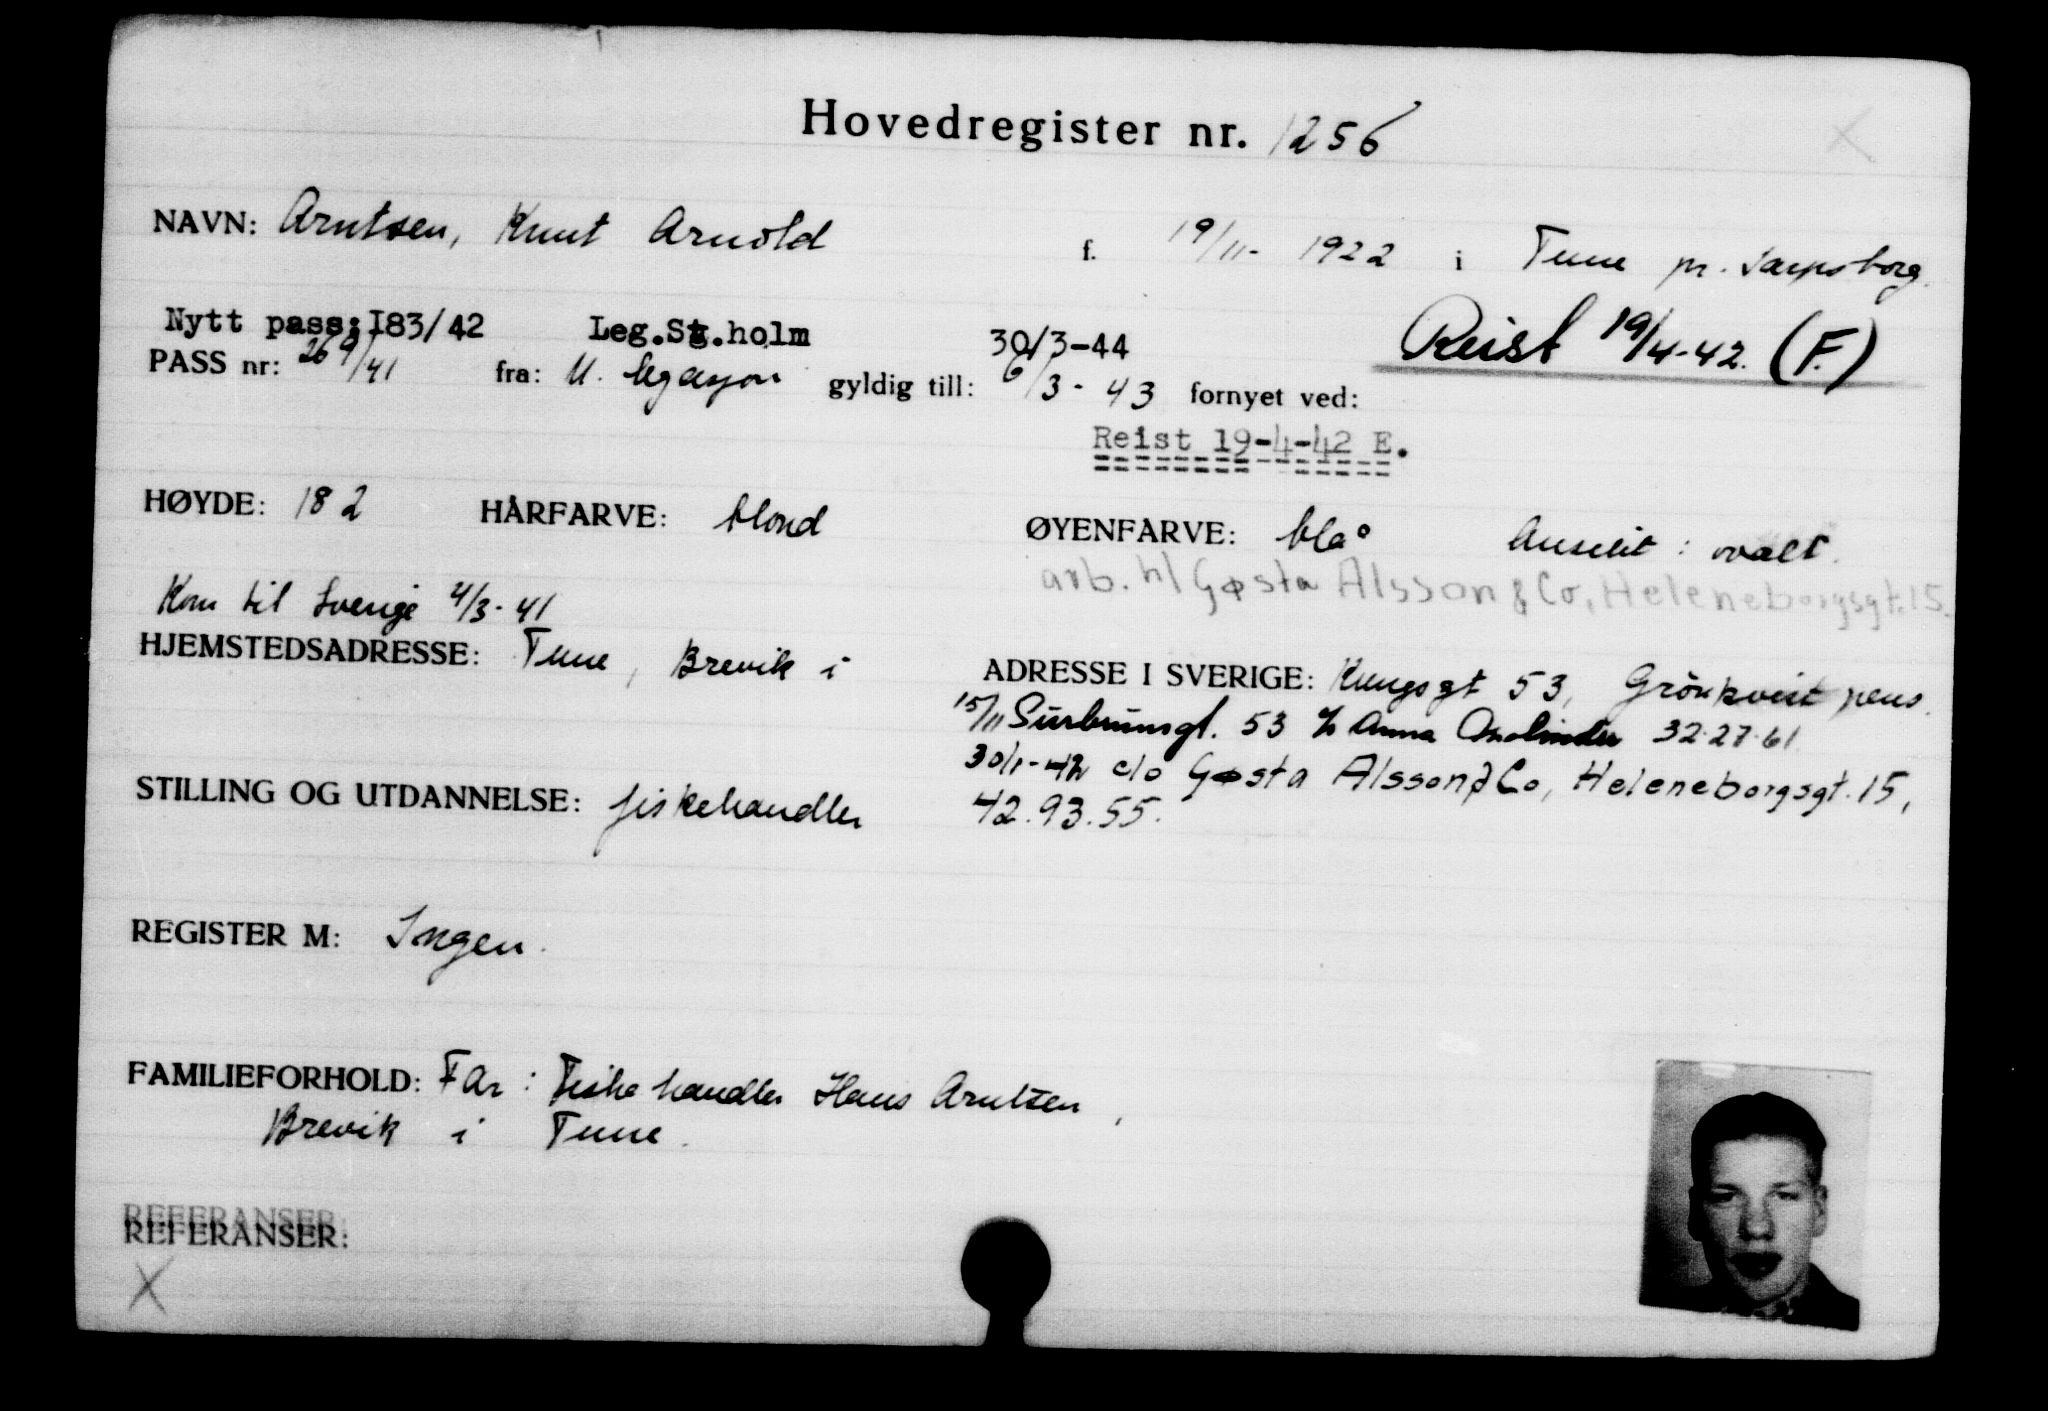 Hovedregister nr. 1256
NAVN: Arntsen, Knut Arnold f. 19/11- 1922 i Tune pr. Sarpsborg.
Nytt pass: I83/42 Leg.St.holm 30/3-44 Reist 19/4-42. (F.)
PASS nr: 269/41 fra: U. legasjon gyldig till: 6/3 - 43 fornyet ved:
Reist 19-4-42 E.
HØYDE: 182 HÅRFARVE: blond ØYENFARVE: blå Ansikt: ovalt.
arb. h/ Gøsta Alsson & Co, Heleneborgsgt. 15.
Kom til Sverige 4/3-41
HJEMSTEDSADRESSE: Tune, Brevik i
ADRESSE I SVERIGE: Kungsgt 53, Grönkvist pens.
15/11 Surbrunsgt. 53 % Anna 32.27.61
30/1-42 c/o Gøsta Alsson & Co, Heleneborgsgt. 15,
42.93.55.
STILLING OG UTDANNELSE: fiskehandler
REGISTER M: Ingen.
FAMILIEFORHOLD: Far: Fiskehandler Hans Arntsen,
Brevik i Tune.
REFERANSER:
REFERANSER:
X